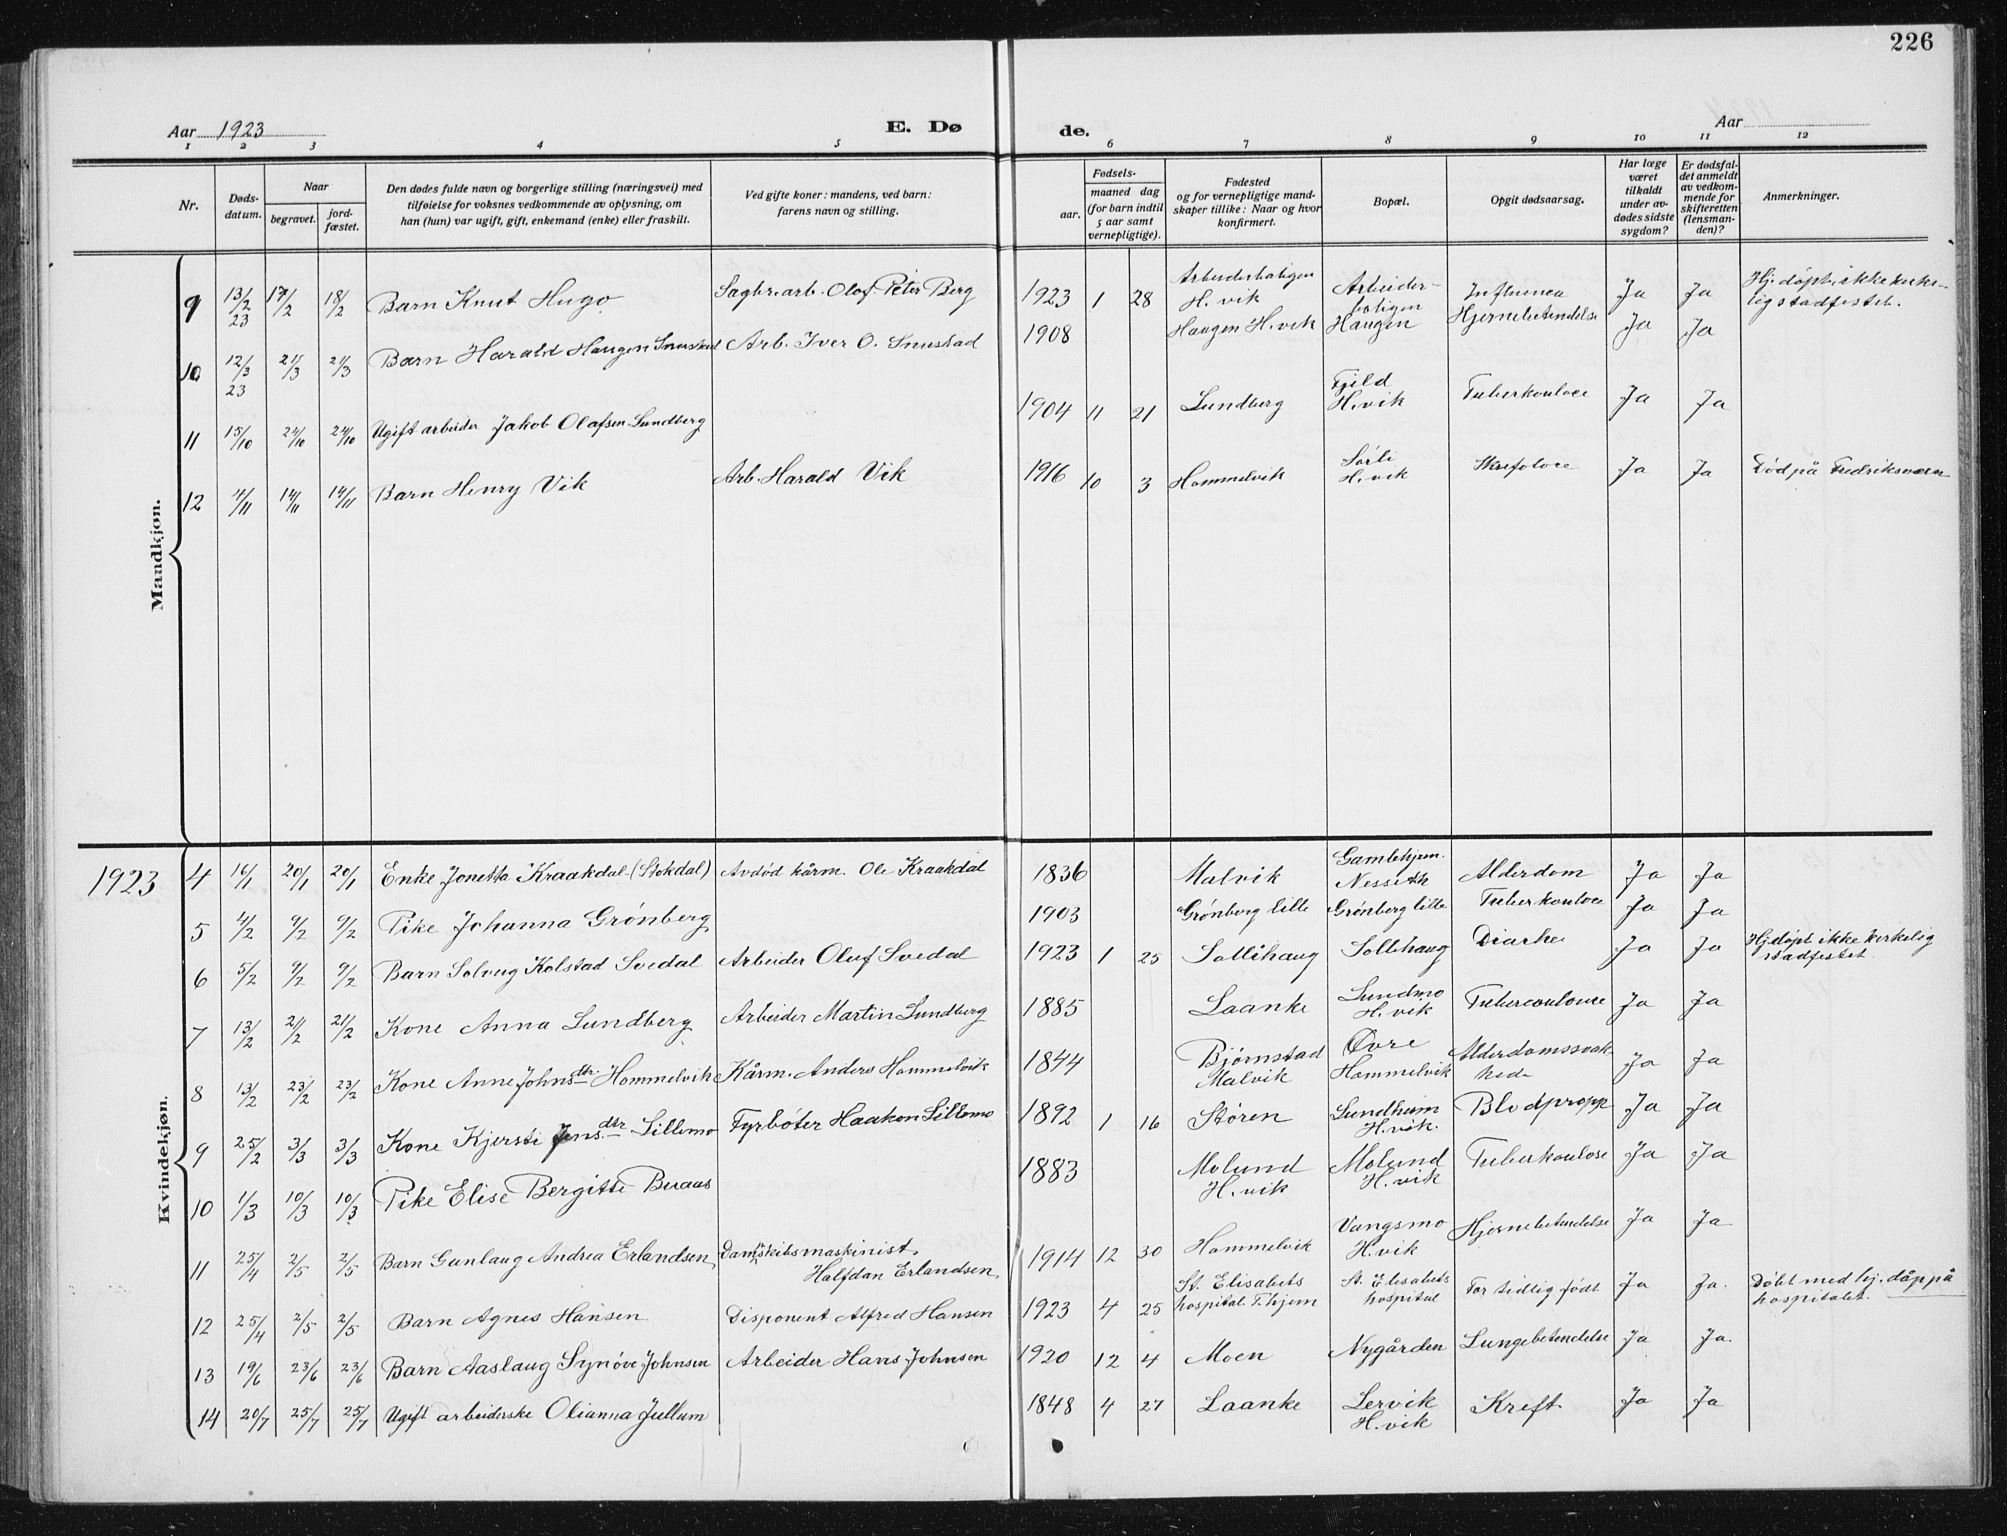 226
Aar 1923 E. Dø de. Aar
1 2 3 4 5 6 7 8 9 10 11 12
Nr. Døds-datum. Naar begravet. jord-fæstet. Den dødes fulde navn og borgerlige stilling (næringsvei) med tilføielse for voksnes vedkommende av oplysning, om han (hun) var ugift, gift, enkemand (enke) eller fraskilt. Ved gifte koner: mandens, ved barn: farens navn og stilling. Fødsels- aar. maaned dag (for barn indtil 5 aar samt vernepligtige). Fødested og for vernepligtige mand-skaper tillike: Naar og hvor konfirmert. Bopæl. Opgit dødsaarsag. Har læge været tilkaldt under av-dødes sidste sygdom? Er dødsfal-det anmeldt av vedkom-mende for skifteretten (lensman-den)? Anmerkninger.
Mandkjøn.
9 13/2 23 17/2 18/2 Barn Knut Hugo Sagbr.arb. Olaf Peter Berg 1923 1 28 Arbeiderboligen H.vik Arbeider-boligen Influensa Ja Ja Hj. døpt, ikke kirke-lig stadfestet.
10 12/3 23 21/3 21/3 Barn Harald Haugen Snustad Arb. Iver O. Snustad 1908 Haugen H.vik Haugen Hjernebetendelse Ja Ja
11 15/10 24/10 24/10 Ugift arbeider Jakob Olafsen Lundberg 1904 11 21 Lundberg Fjeld H.vik Tuberkoulose Ja Ja
12 4/11 14/11 14/11 Barn Henry Vik Arb. Harald Vik 1916 10 3 Hommelvik Sørli H.vik Skrofolose Ja Ja Død på Fredriksvern
Kvindekjøn.
1923 4 16/1 20/1 20/1 Enke Jonetta Kraakdal (Stokdal) Avdød kårm. Ole Kraakdal 1836 Malvik Gamlehjem. Alderdom Ja Ja
5 4/2 9/2 9/2 Pike Johanna Grønberg 1903 Grønberg lille Grønberg lille Tuberkoulose Ja Ja
6 5/2 9/2 9/2 Barn Solveig Kolstad Svedal Arbeider Oluf Svedal 1923 1 25 Sollihaug Sollihaug Diarhe Ja Ja Hj.døpt ikke kirkelig stadfestet
7 13/2 21/2 21/2 Kone Anna Lundberg Arbeider Martin Lundberg 1885 Laanke Lundmo H.vik Tuberculouse Ja Ja
8 13/2 23/2 23/2 Kone Anne Johnsdtr. Hommelvik Kårm. Anders Hommelvik 1844 Bjørnstad Malvik Øvre Hommelvik Alderdomssvakhed Ja Ja
9 25/2 3/3 3/3 Kone Kjersti Jensdtr Lillemo Fyrbøter Haakon Lillemo 1892 1 16 Støren Lundheim H.vik. Blodpropp Ja Ja
10 1/3 10/3 10/3 Pike Elise Bergitte Buaas 1883 Molund H.vik Molund H.vik Tuberkoulose Ja Ja
11 25/4 2/5 2/5 Barn Gunlaug Andrea Erlandsen Dampskibsmaskinist Halfdan Erlandsen 1914 12 30 Hommelvik Vangsmo H.vik Hjernebetendelse Ja Ja
12 25/4 2/5 2/5 Barn Agnes Hansen Disponent Alfred Hansen 1923 4 25 St. Elisabets hospital T.hjem St. Elisabets hospital For tidlig født Ja Ja. Døbt med hj. dåp på hospitalet.
13 19/6 23/6 23/6 Barn Aaslaug Synøve Johnsen Arbeider Hans Johnsen 1920 12 4 Moen Nygården Lungebetendelse Ja Ja.
14 20/7 25/7 25/7 Ugift arbeiderske Olianna Jullum 1848 4 27 Laanke Lervik H.vik Kreft Ja Ja